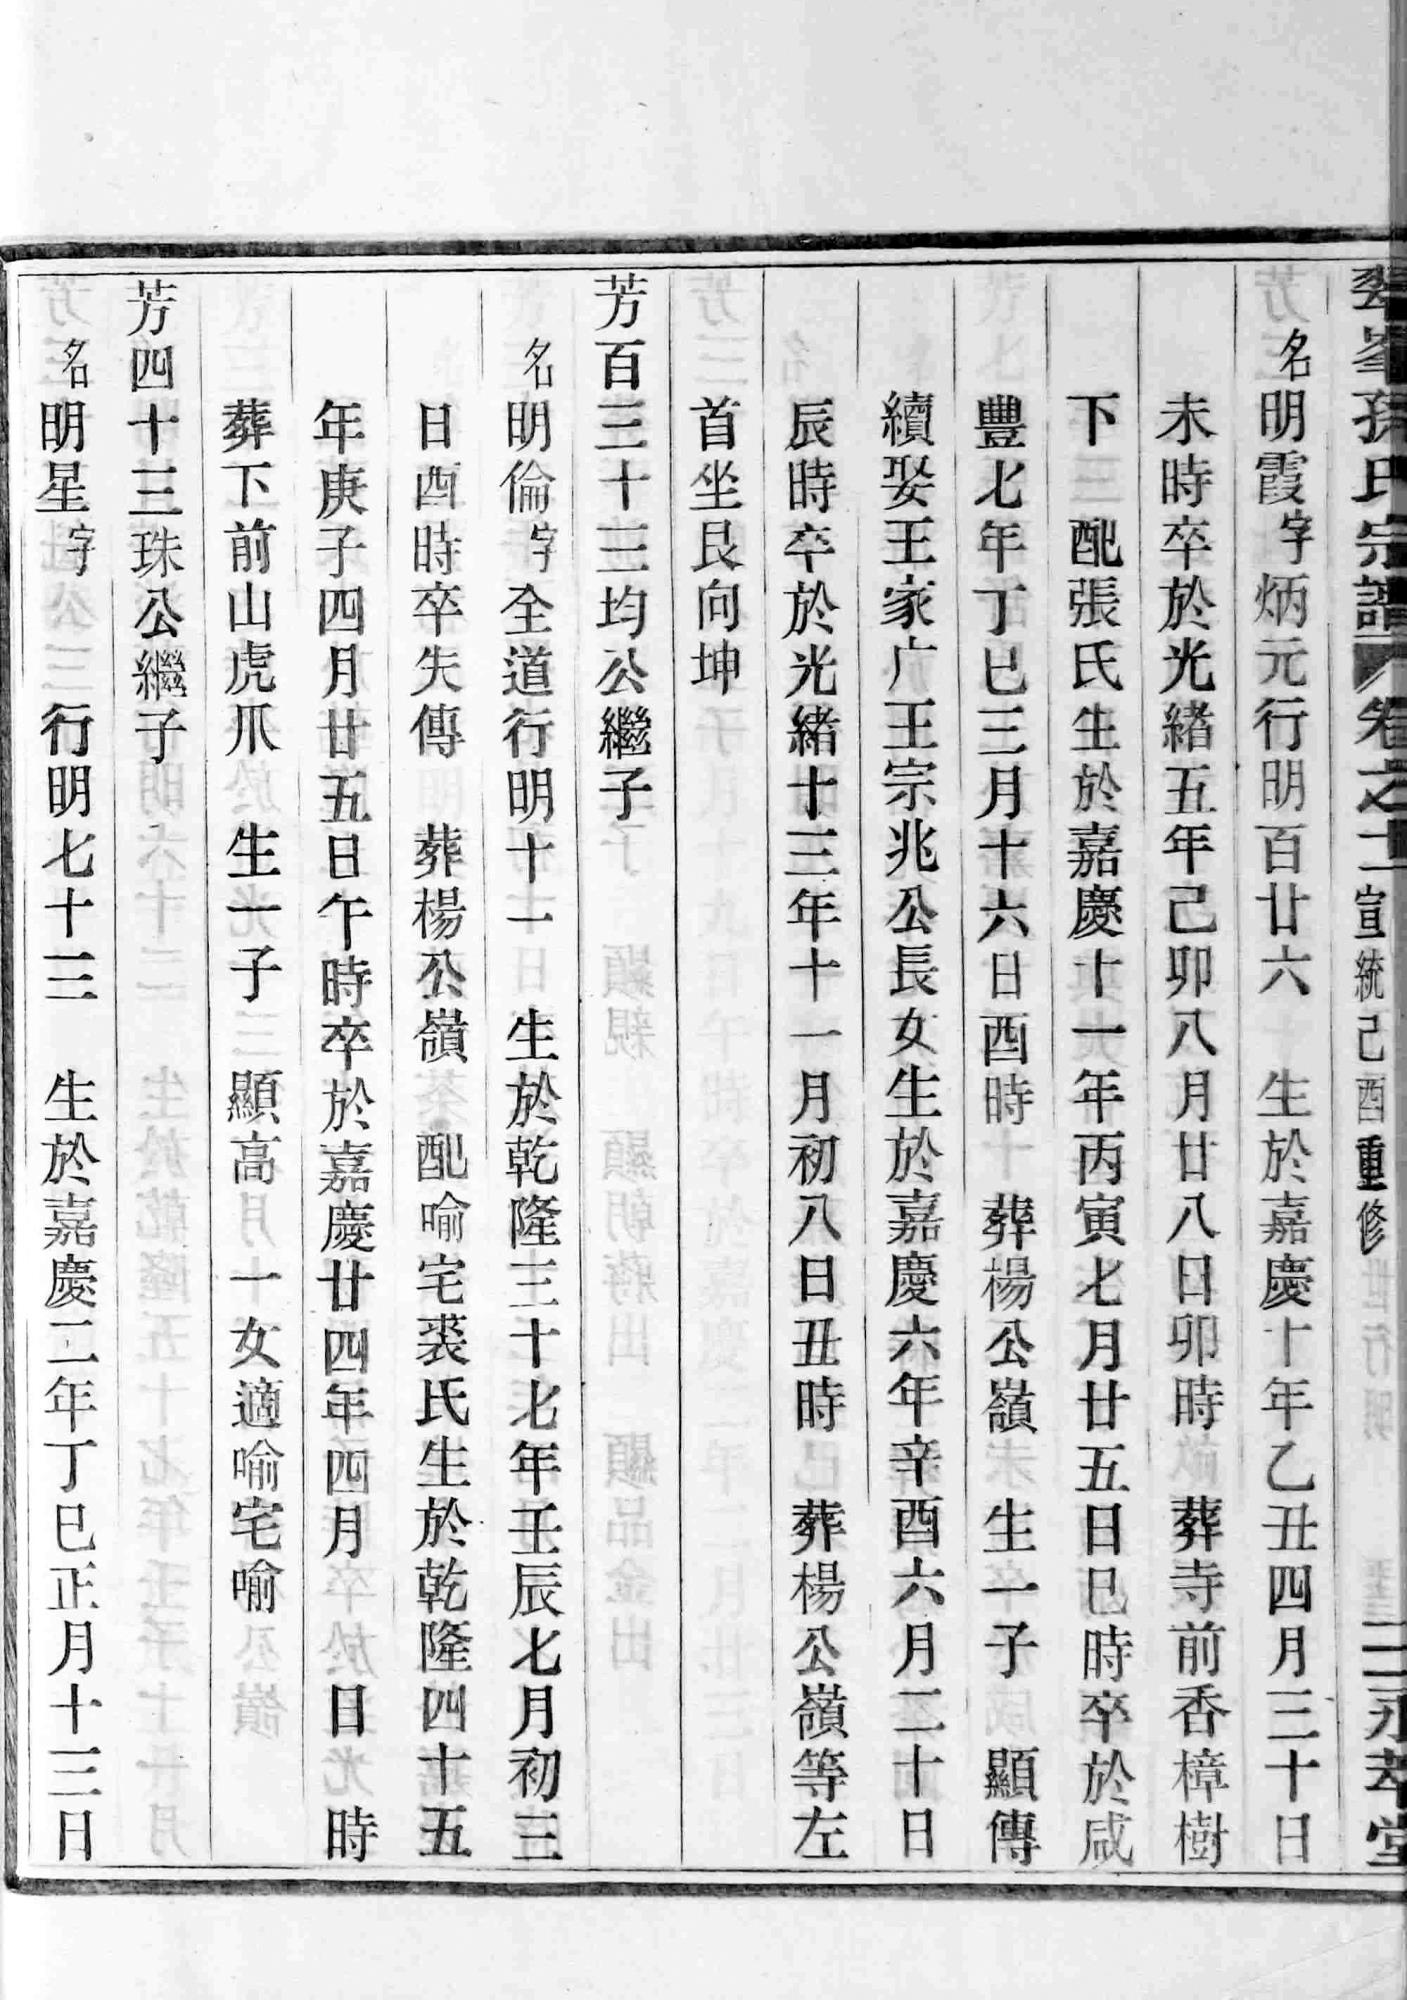 翠峯孫氏宗譜 卷之十二 宣統己酉重修 二 永萃堂
名明霞字炳元行明百廿六 生於嘉慶十年乙丑四月三十日
未時卒於光緒五年己卯八月廿八日卯時 葬寺前香樟樹
下 配張氏生於嘉慶十一年丙寅七月廿五日巳時卒於咸
豐七年丁巳三月十六日酉時 葬楊公嶺 生一子 顯傳
續娶王家广王宗兆公長女生於嘉慶六年辛酉六月二十日
辰時卒於光緒十三年十一月初八日丑時 葬楊公嶺等左
首坐艮向坤
芳百三十三均公繼子
名明倫字全道行明十一 生於乾隆三十七年壬辰七月初三
日酉時卒失傳 葬楊公嶺 配喻宅裘氏生於乾隆四十五
年庚子四月廿五日午時卒於嘉慶廿四年四月 日 時
葬下前山虎爪 生一子 顯高 一女適喻宅喻
芳四十三珠公繼子
名明星字 行明七十三 生於嘉慶二年丁巳正月十三日